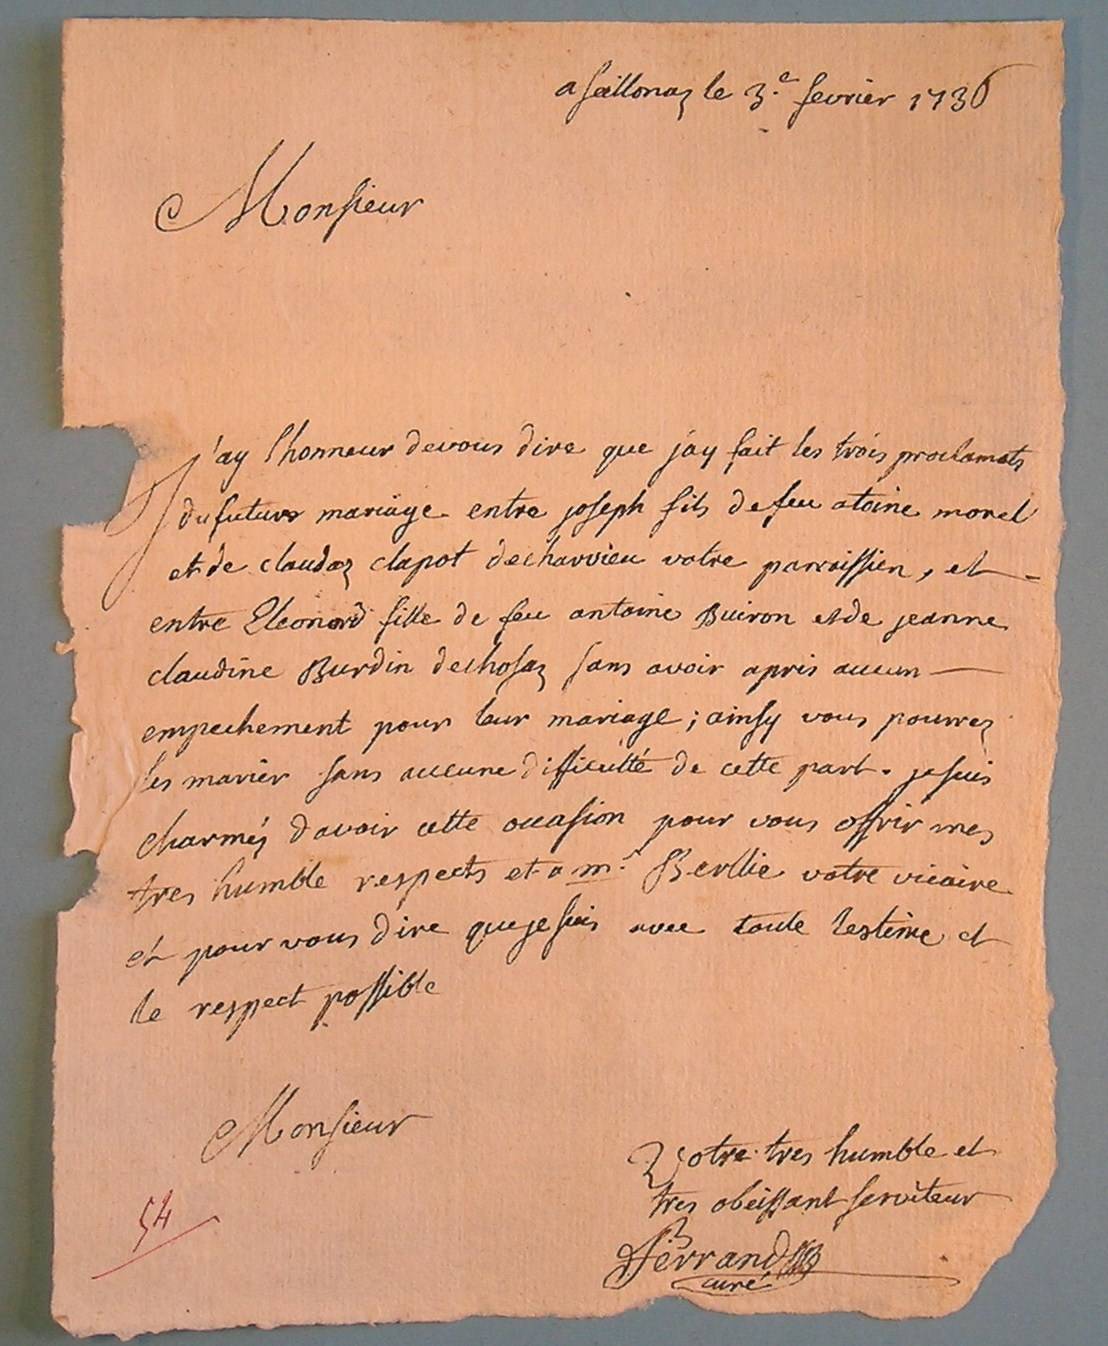 a Saillonaz le 3.e fevrier 1736
Monsieur
J'ay l'honneur devous dire que j'ay fait les trois proclamats
du futur mariage entre joseph fils de feu atoine morel
et de claudaz clapot decharvieu votre parroissien, et
entre Eleonord fille de feu antoine Buiron et de jeanne
claudine Burdin dechosaz sans avoir apris aucun
empechement pour leur mariage ; ainsy vous pourrez
les marier sans aucune difficulté de cette part. je suis
charméz d'avoir cette occasion pour vous offrir mes
tres humble respects et a m.r Berllie votre vicaire
et pour vous dire que je suis avec toute lestime et
le respect possible
Monsieur
Votre tres humble et
tres obeissant serviteur
Ferrand
curé
54